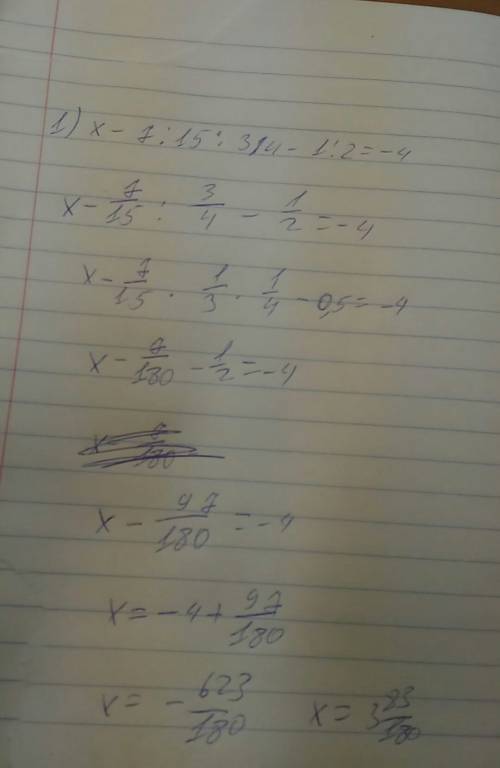 1) x - 7:15:3/4 - 1:2 = -4
x - 7/15 : 3/4 - 1/2 = -4
x - 7/15 · 1/3 · 1/4 - 0,5 = -4
x - 7/180 - 1/2 = -4
x - 97/180 = -4
x = -4 + 97/180
x = - 623/180 x = 3 83/180